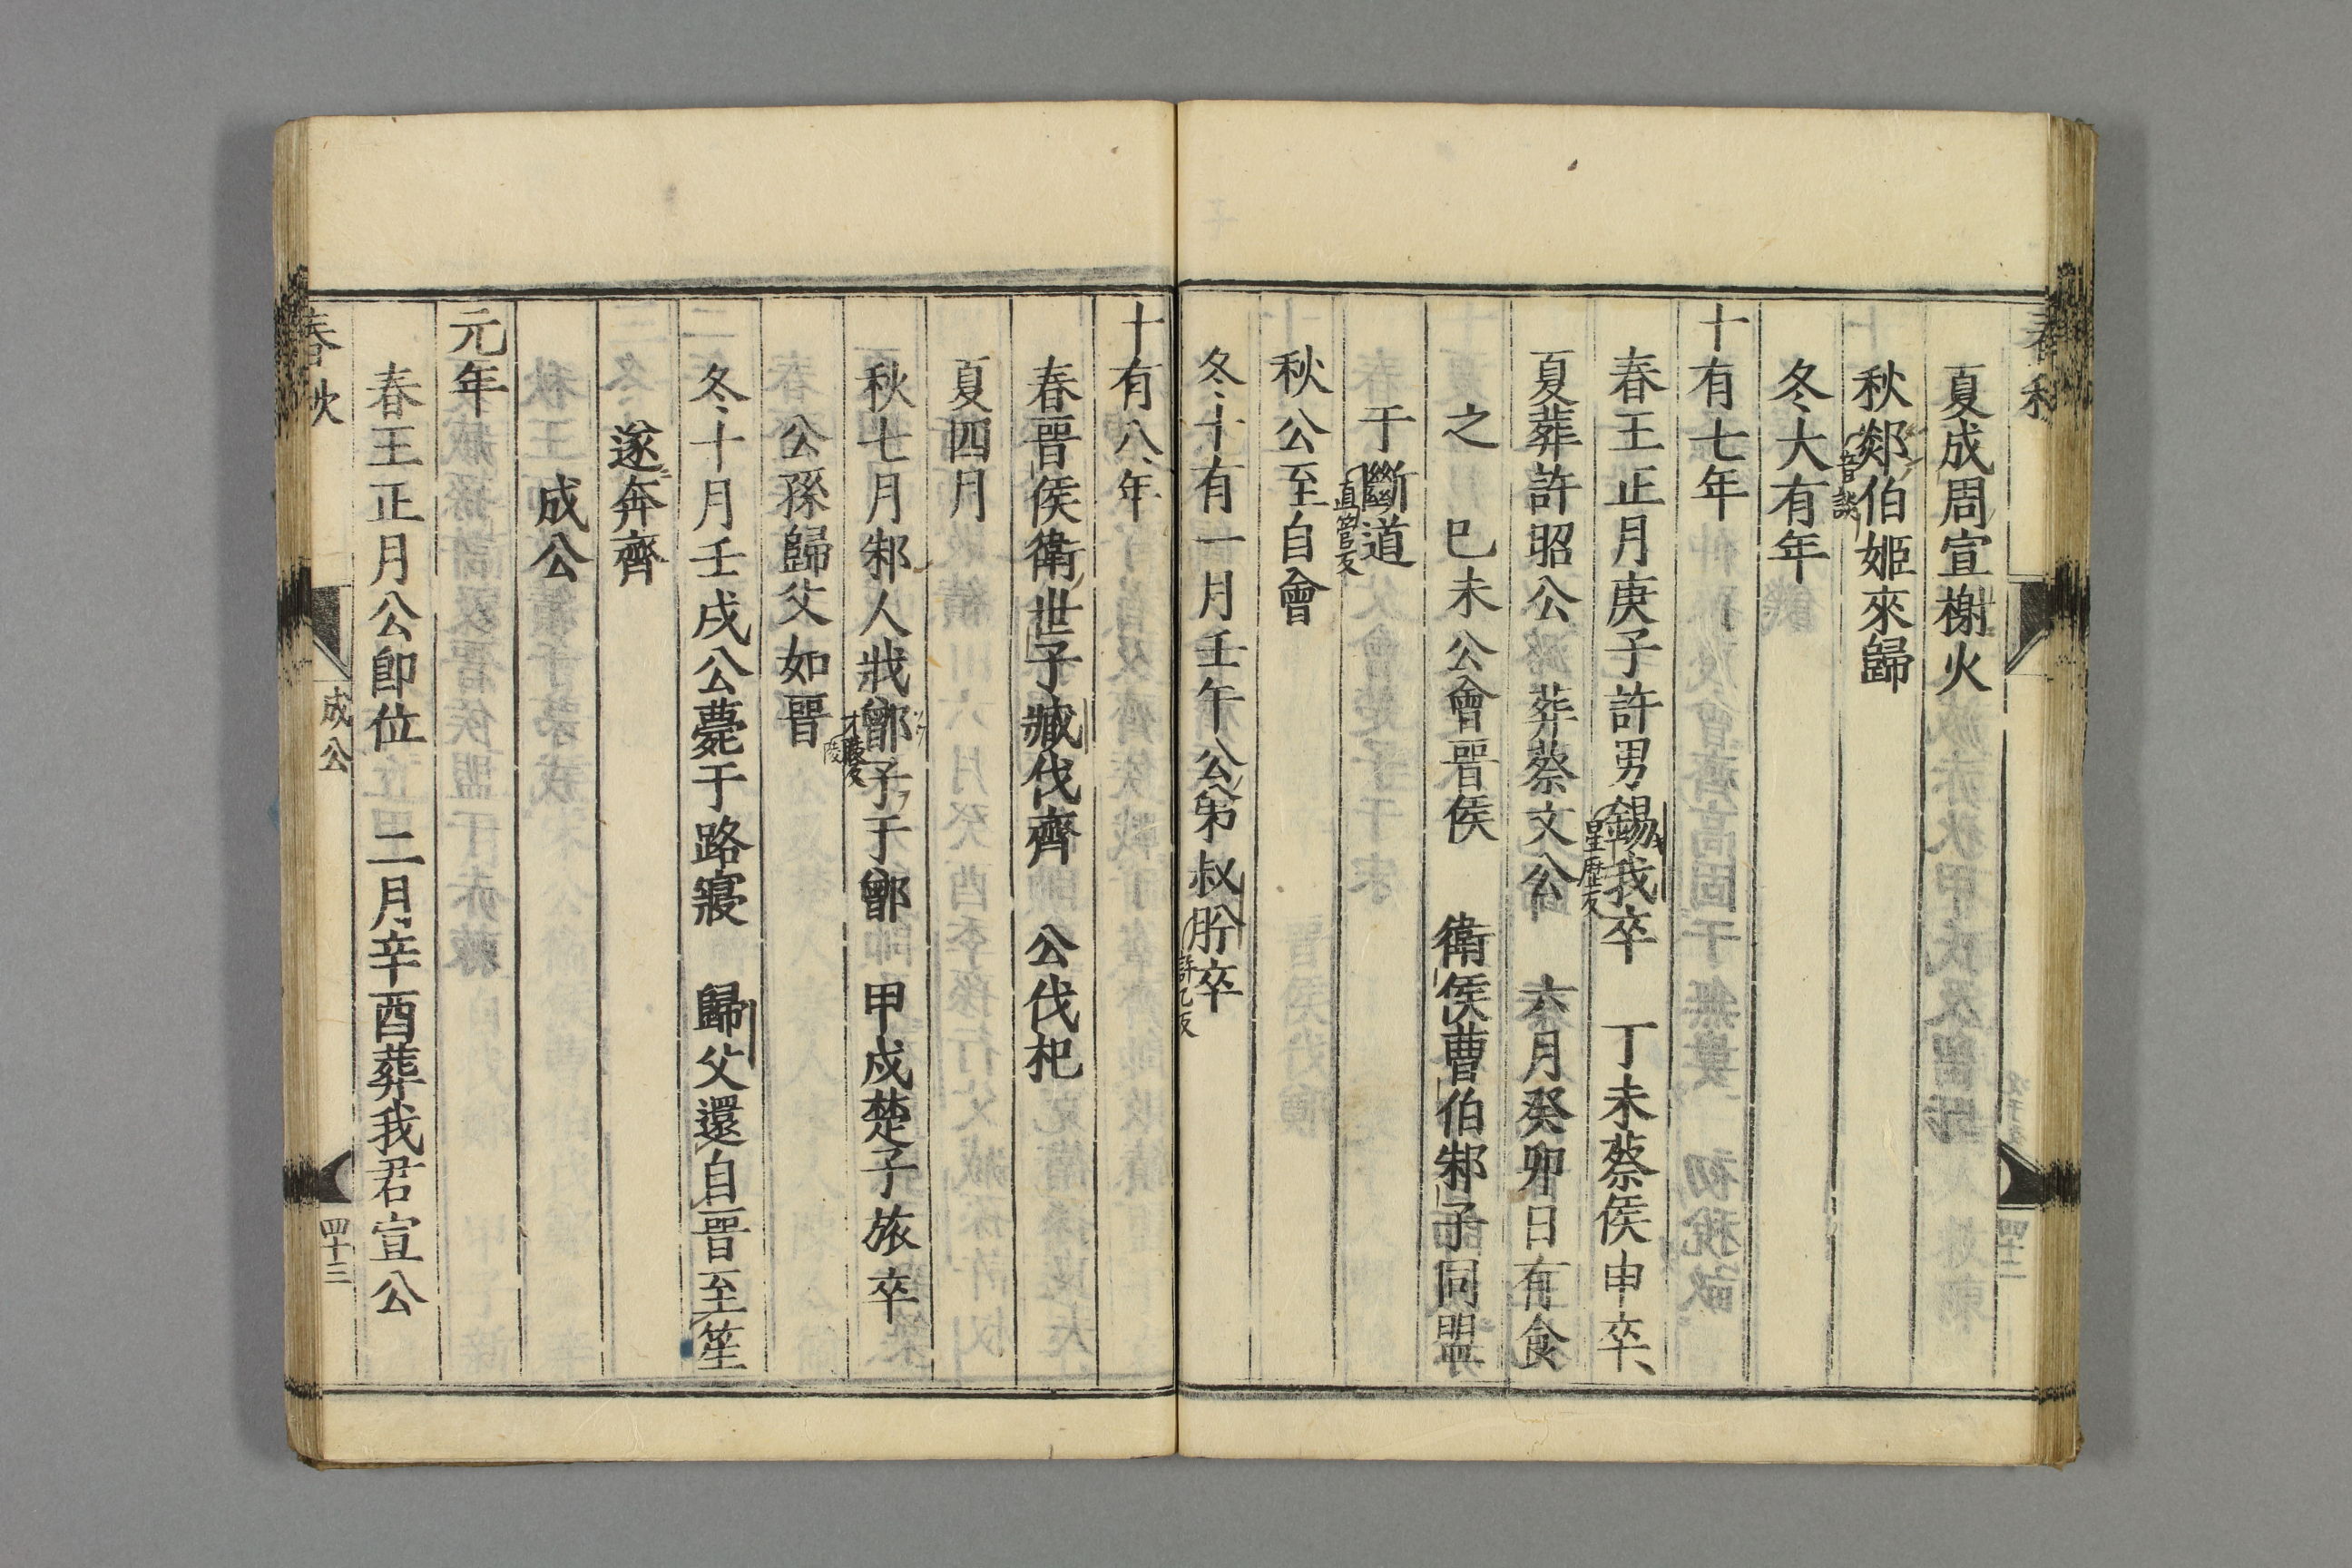 春秋
夏成周宣榭火
秋郯伯姬來歸
音談
冬大有年
十有七年
春王正月庚子許男錫我卒 丁未蔡侯申卒
星歷反
夏葬許昭公 葬蔡文公 六月癸卯日有食
之 巳未公會晉侯 衛侯曹伯邾子同盟
于斷道
直管反
秋公至自會
冬十有一月壬午公弟叔肸卒
許乙反
十有八年
春晉侯衛世子臧伐齊 公伐杞
夏四月
秋七月邾人戕鄫子于鄫 甲戍楚子旅卒
才陵反
陵
公孫歸父如晉
冬十月壬戌公薨于路寢 歸父還自晉至笙
遂奔齊
成公
元年
春王正月公即位 二月辛酉葬我君宣公
春秋
成公
四十三